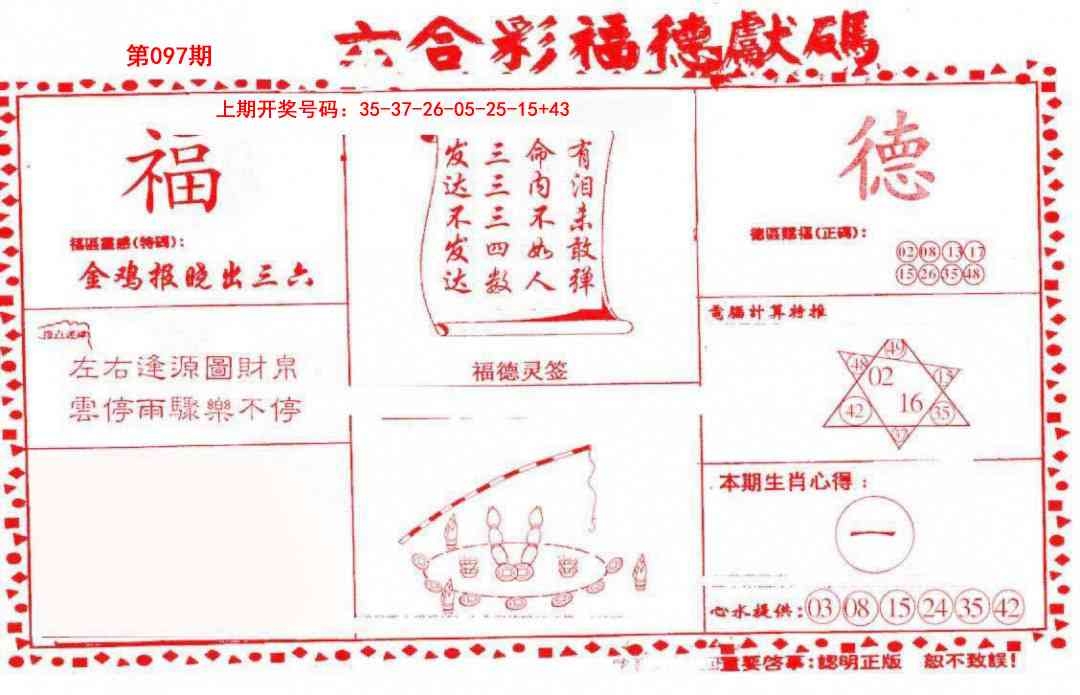 六合彩福德獻碼
第097期
上期开奖号码：35-37-26-05-25-15+43
福
福區靈感(特碼)：
金鸡报晓出三六
左右逢源圖財帛
雲停雨驟樂不停
有泪未敢弹
命内不如人
三三三四数
发达不发达
福德灵签
德
德區賜福(正碼)：
02 08 13 17
15 26 35 48
電腦計算特推
49
48 02 15
42 16 35
本期生肖心得：
一
心水提供：03 08 15 24 35 42
重要啓事：認明正版 恕不致誤！